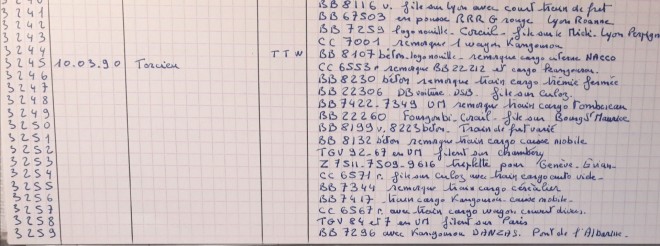 BB 8116 v. file sur Lyon avec court train de fret
3241 BB 67503 en pousse RRR G rouge Lyon Roanne
3242 BB 7259 logo nouille - Corail - file sur le Midi. Lyon Perpign
3243 CC 7001 remorque 1 wagon Kangourou
3244 TTW BB 8107 béton. logo nouille - remorque cargo citerne NACCO
3245 10.03.90 Torcieu CC 6553 remorque BB 22212 et cargo Kangourou.
3246 BB 8230 béton remorque train cargo trémie fermée
3247 BB 22306 DB voiture DSB. file sur Culoz.
3248 BB 7422-7349 UM remorque train cargo Tombereau
3249 BB 22260 Fourgon bi - Corail - file sur Bourg St Maurice
3250 BB 8199 v. 8223 béton. Train de fret varié
3251 BB 8132 béton remorque train cargo caisse mobile
3252 TGV 92-67 en UM filent sur Chambéry
3253 Z 7511-7509-9616 triplette pour Genève - Evian
3254 CC 6571 r. file sur Culoz avec train cargo auto vide
3255 BB 7344 remorque train cargo céréalier
3256 BB 7417 train cargo Kangourou caisse mobile
3257 CC 6567 r. avec train cargo wagon couvert divers.
3258 TGV 84 et 7 en UM filent sur Paris
3259 BB 7296 avec Kangourou DANZAS. Pont de l'Albarine